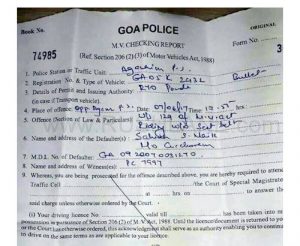 Book No. GOA POLICE ORIGINAL
74985 M.V. CHECKING REPORT Form No. 3
(Ref. Section 206 (2) (3) of Motor Vehicles Act, 1988)
1. Police Station or Traffic Unit P.S.
2. Registration No. & Type of Vehicle: GA05K Bullet
3. Details of Permit and Issuing Authority: RTO Ponda
(in case of Transport vehicle).
4. Place of offence Opp P.S. Date at hrs
5. Offence (Section of Law & Particulars) U/s 129 of M.V. Act
Riding w/o
6. Name and address of the Defaulter(s)
7. M.D.L. No. of Defaulter:
8. Name and address of Witness(es) PC 7597
9. Whereas, you are being prosecuted for the offence described above, you are hereby required to attend
Traffic Cell the Court of Special Magistrate
at hrs on to answer the
said charge unless otherwise ordered by the Court.
(i) Your driving licence No. valid till has been taken into my
possession in pursuance of Section 206 (2) of M.V. Act, 1988. Until the licence/document is returned to you
or the Court has otherwise ordered, this acknowledgment shall serve as authority enabling you to continue
to drive on the same terms as are applicable to your licence.